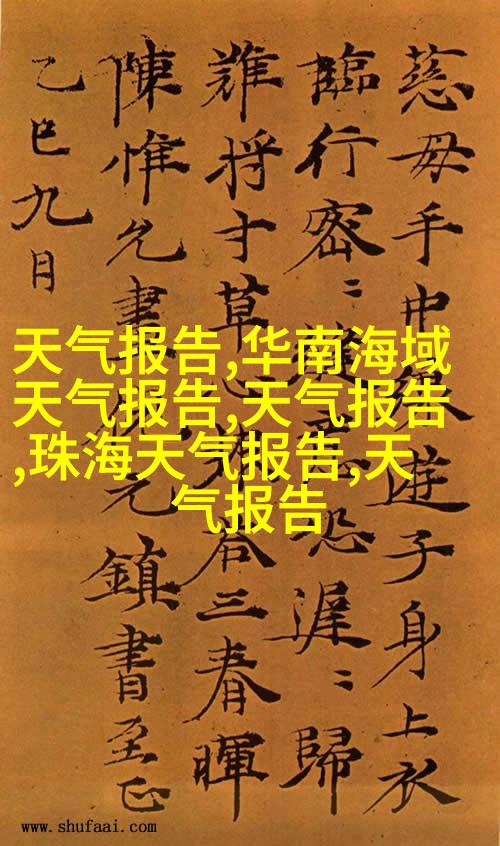 慈母手中線遊子身上衣
臨行密〻縫意恐遲〻歸
難将寸草心報答三春暉
陳惟允書元鎮書至正
乙巳九月
天气报告,华南海域
天气报告,天气报告
,珠海天气报告,天
气报告
www.shufaai.com